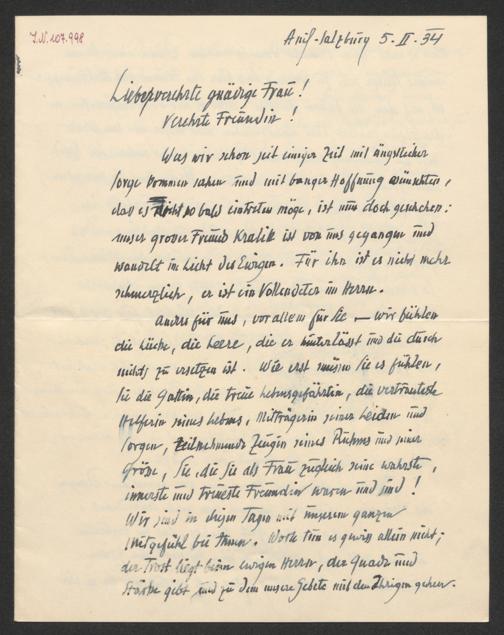 I.N. 107.998
Anif-Salzburg 5. II. 34
Liebe, verehrte gnädige Frau!
Verehrte Freundin!
Was wir schon seit einiger Zeit mit ängstlicher
Sorge kommen sahen und mit banger Hoffnung wünschten,
das es nicht so bald eintreten möge, ist nun doch geschehen:
unser grosser Freund Kralik ist von uns gegangen und
wandelt im Licht des Ewigen. Für ihn ist es nicht mehr
schmerzlich, er ist ein Vollendeter im Herrn.
Anders für uns, vor allem für Sie — wir fühlen
die Lücke, die Leere, die er hinterlässt und die durch
nichts zu ersetzen ist. Wie erst müssen Sie es fühlen,
Sie die Gattin, die treue Lebensgefährtin, die vertrauteste
Helferin seines Lebens, Mitträgerin seiner Leiden und
Sorgen, Teilnehmende Zeugin seines Ruhms und seiner
Grösse, Sie, die Sie als Frau zugleich seine wahrste,
innerste und treueste Freundin waren und sind!
Wir sind in diesen Tagen mit unserem ganzen
Mitgefühl bei Ihnen. Worte tun es gewiss allein nicht;
der Trost liegt beim ewigen Herrn, der Gnade und
Stärke gibt und zu dem unsere Gebete mit den Ihrigen gehen.